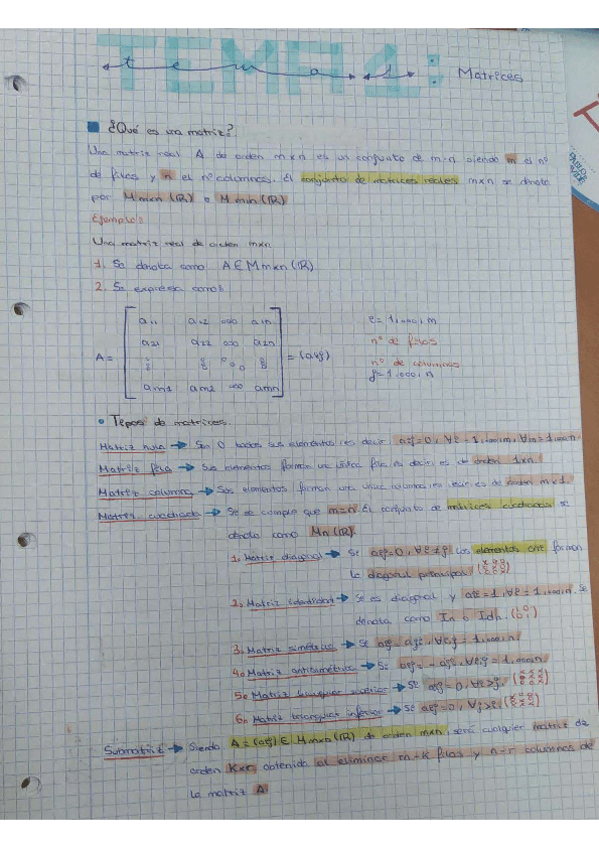 TEMA 1: Matrices
tema 1
¿Qué es una matriz?
Una matriz real A de orden mxn es un conjunto de m·n siendo m el nº
de filas y n el nº columnas. El conjunto de matrices reales mxn se denota
por Mmxn (R) o Mmn (R)
Ejemplo:
Una matriz real de orden mxn
1. Se denota como A ∈ Mmxn (R)
2. Se expresa como:
A = [ a11 a12 ... a1n
a21 a22 ... a2n
am1 am2 ... amn ] = (aij)
i = 1,...,m
nº de filas
nº de columnas
j = 1,...,n
Tipos de matrices.
Matriz nula → Son 0 todos sus elementos, es decir, aij=0, ∀i=1,...,m, ∀j=1...n.
Matriz fila → Sus elementos forman una única fila, es decir, es de orden 1xn.
Matriz columna → Sus elementos forman una única columna, es decir, es de orden mx1.
Matriz cuadrada → Si se cumple que m=n. El conjunto de matrices cuadradas se
denota como Mn (R).
1. Matriz diagonal → Si aij=0, ∀i≠j. Los elementos aii forman
la diagonal principal.
2. Matriz identidad → Si es diagonal y aii=1, ∀i=1,...,n. Se
denota como In o Idn.
3. Matriz simétrica → Si aij=aji, ∀i,j=1,...,n.
4. Matriz antisimétrica → Si aij=-aji, ∀i,j=1,...,n.
5. Matriz triangular superior → Si aij=0, ∀i>j.
6. Matriz triangular inferior → Si aij=0, ∀j>i.
Submatriz → Siendo A=(aij) ∈ Mmxn (R) de orden mxn, será cualquier matriz de
orden Kxr obtenida al eliminar m-K filas y n-r columnas de
la matriz A